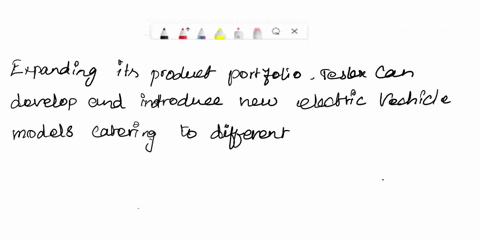 Expanding its product portfolio. Tesla can
develop and introduce new electric vehicle
models catering to different